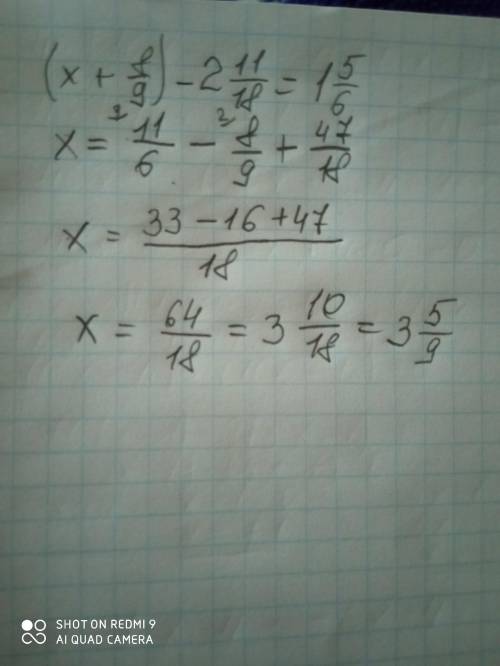 (x + 8/9) - 2 11/18 = 1 5/6
x = 11/6 - 8/9 + 47/18
x = (33 - 16 + 47)/18
x = 64/18 = 3 10/18 = 3 5/9
SHOT ON REDMI 9
AI QUAD CAMERA